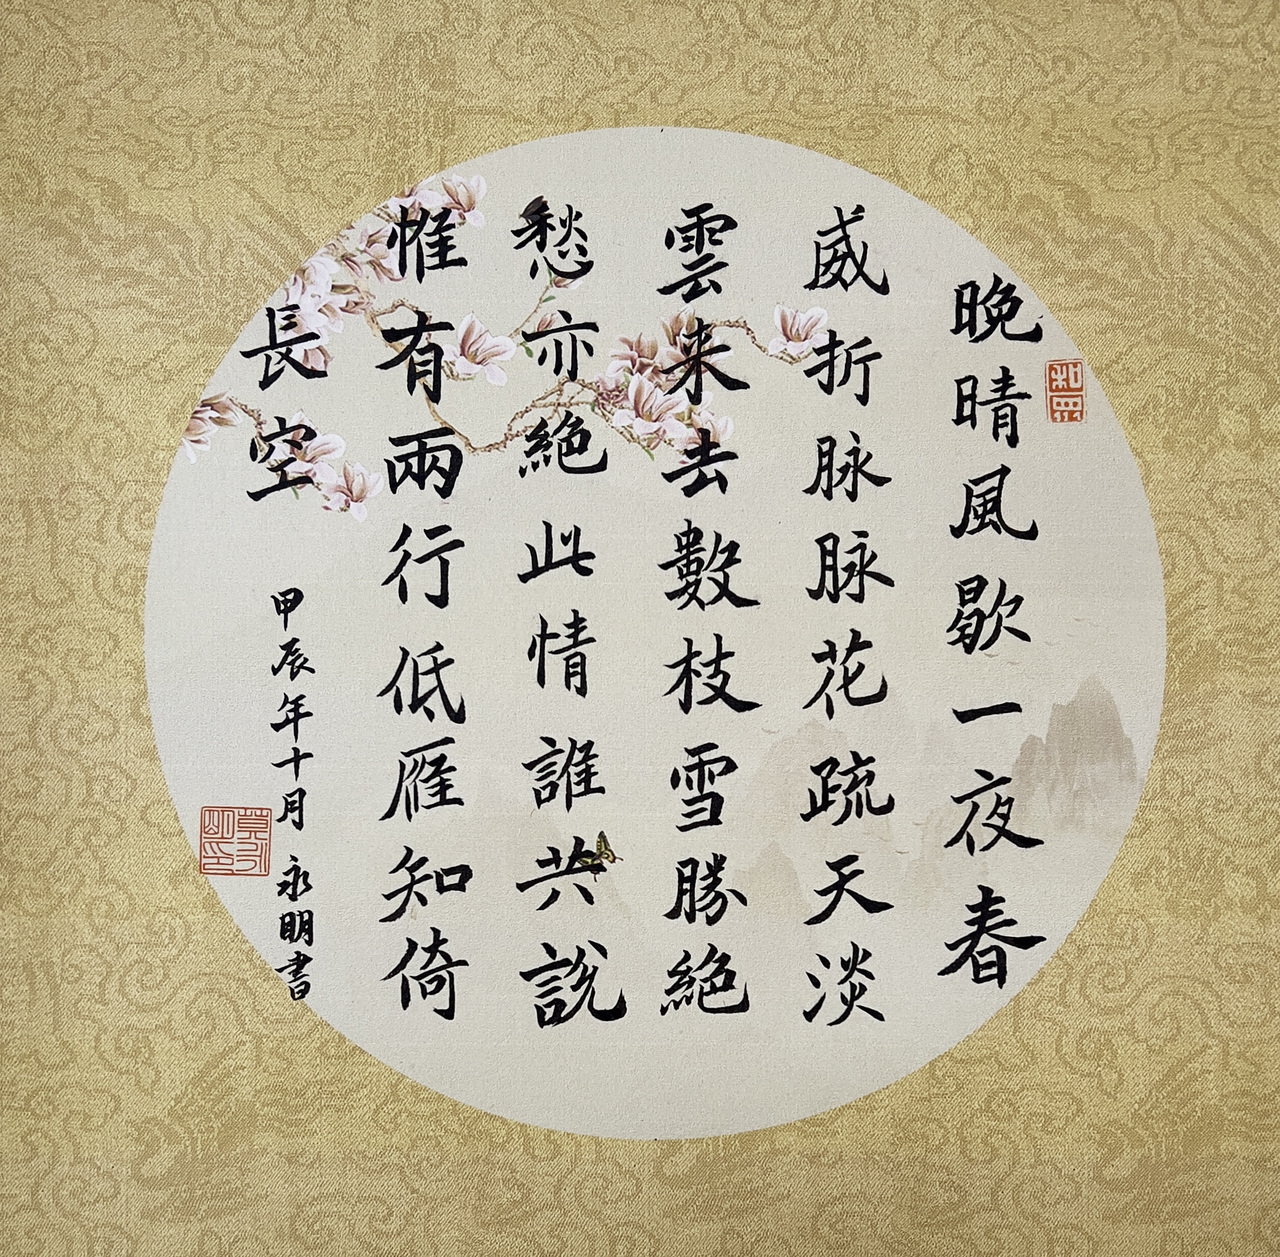 晚晴風歇一夜春
威折脉脉花疏天淡
雲来去數枝雪勝絕
愁亦絕此情誰共說
惟有兩行低雁知倚
長空
甲辰年十月永明書
和眾
莫永明印